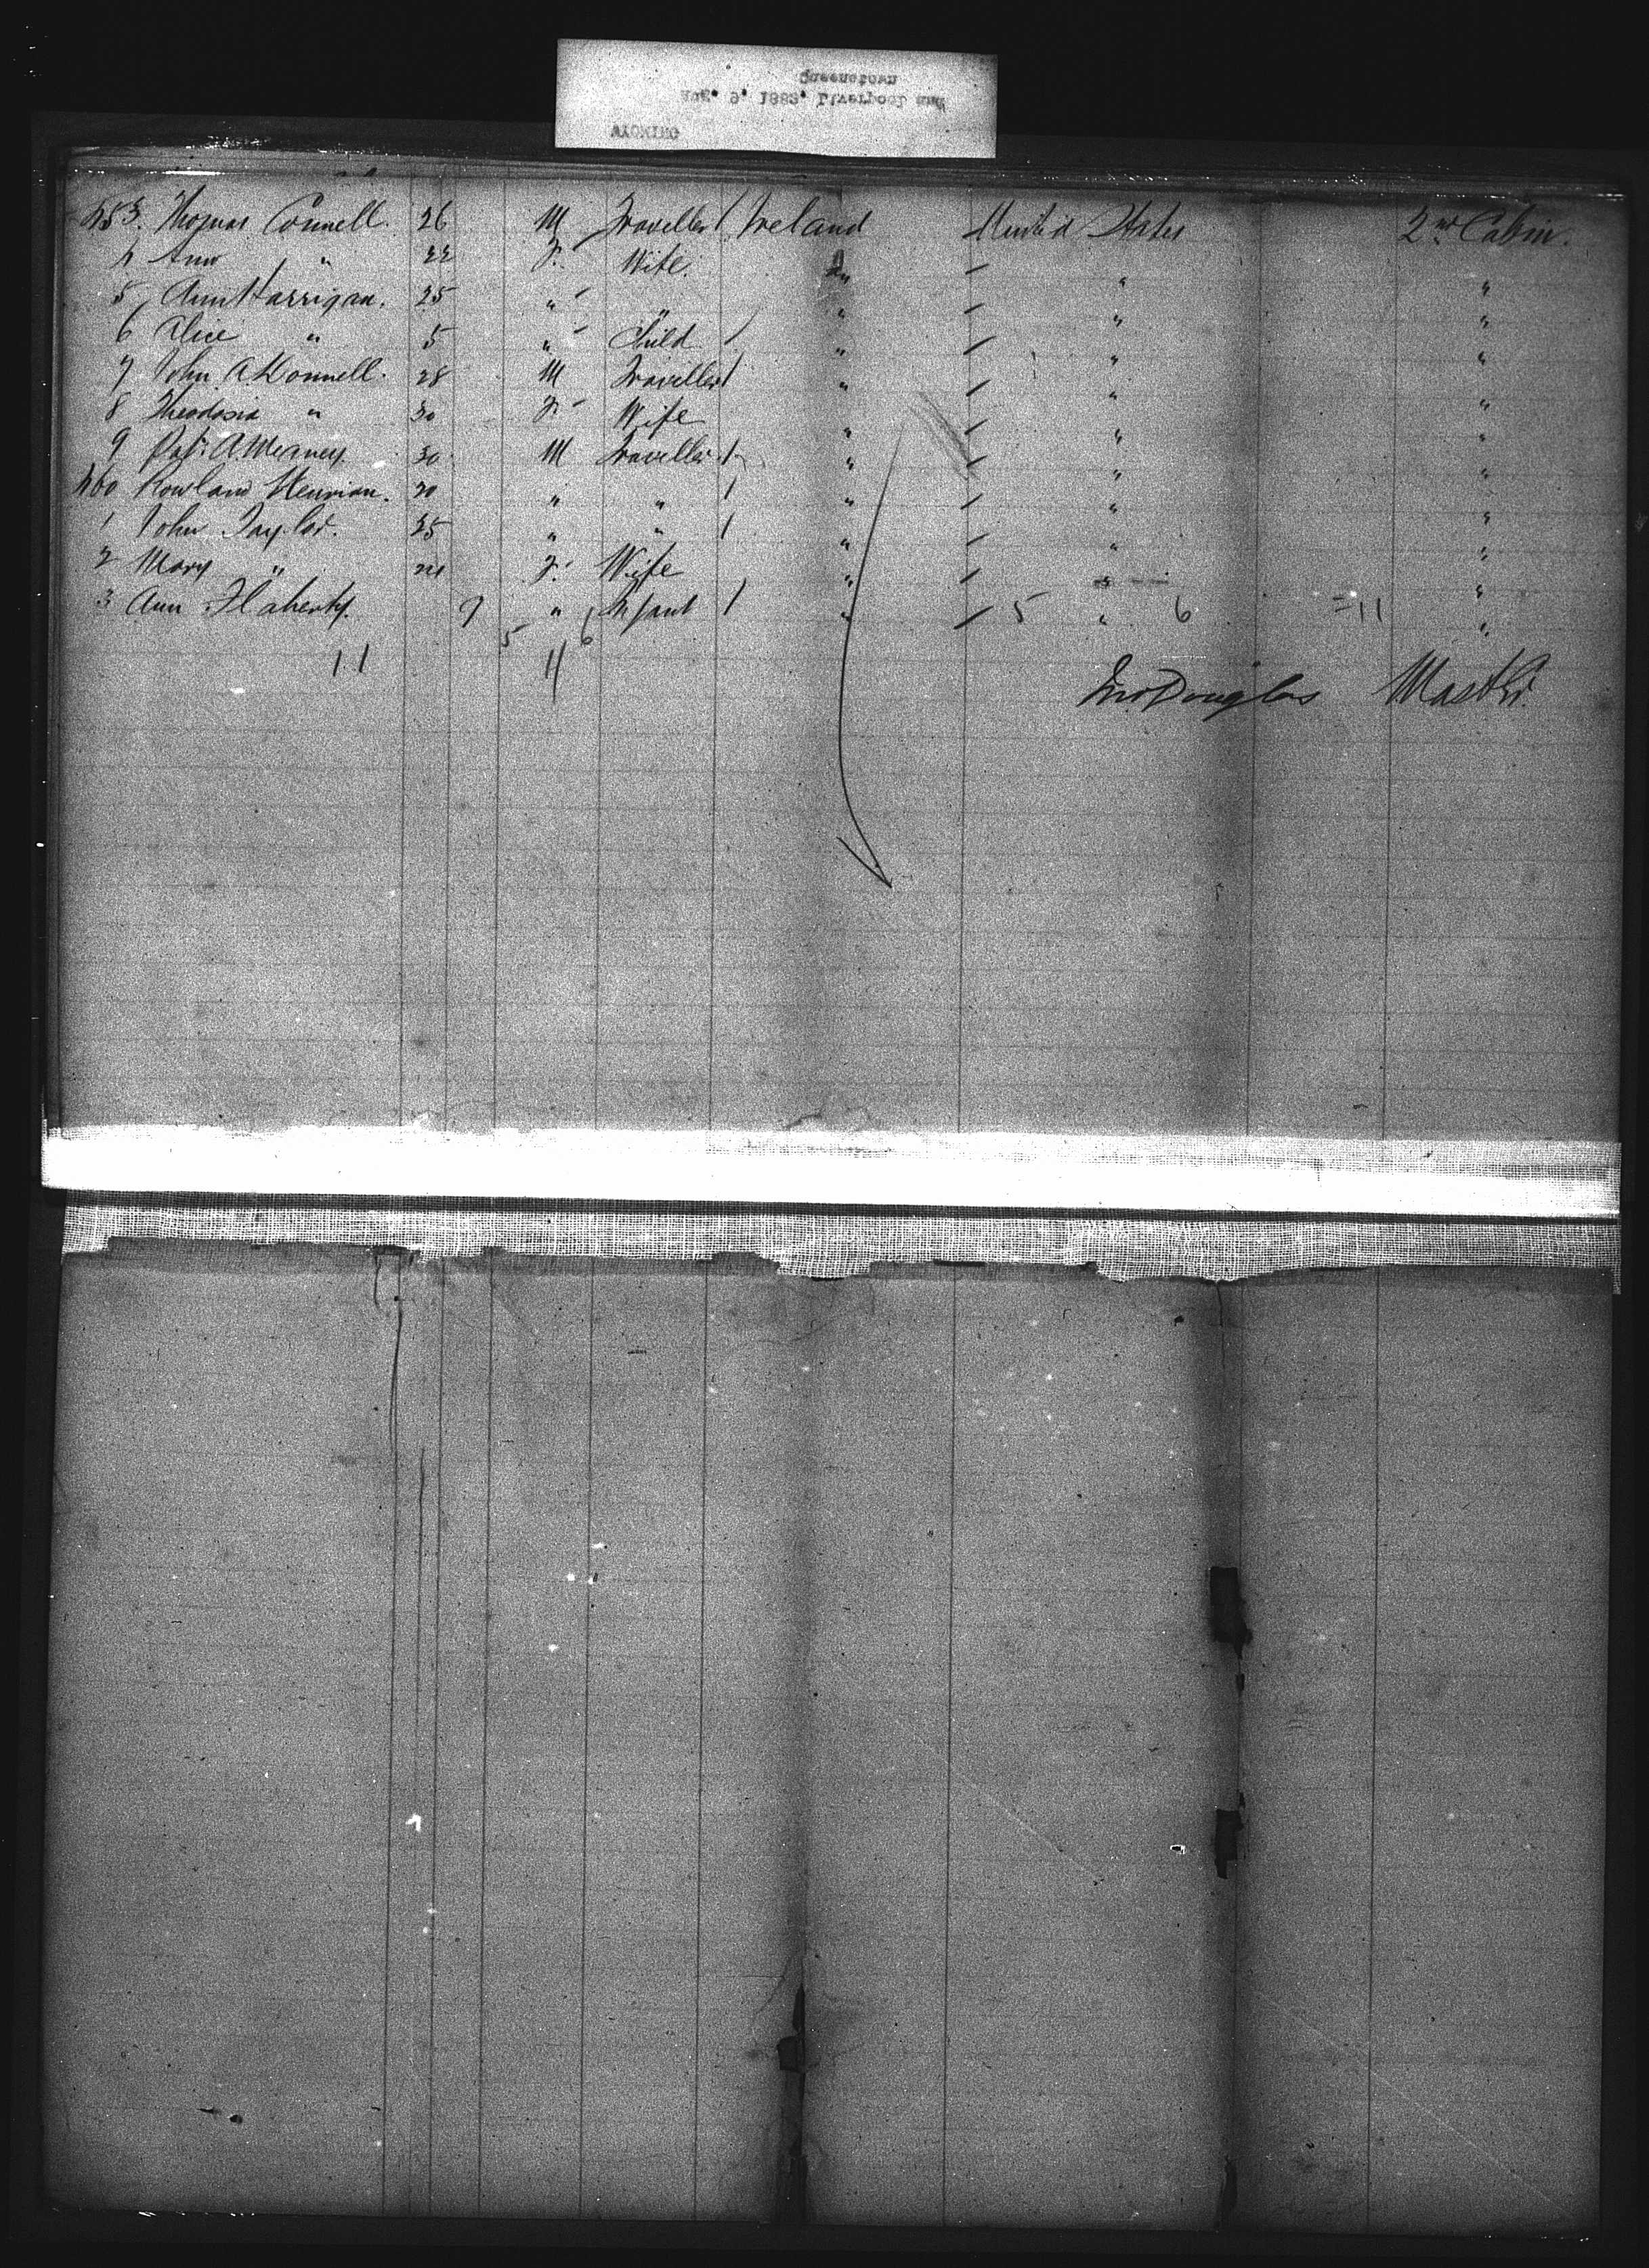 WYOMING
Aug. 9. 1883. Liverpool and
Queenstown
453. Thomas Connell. 26 M Traveller / Ireland United States 2nd Cabin.
4 Ann " 22 F. Wife. " / " "
5 Ann Harrigan. 25 " " " / " "
6 Alice " 5 " Child / " / " "
7 John A Konnell. 28 M Traveller / " / " "
8 Theodosia " 30 F Wife " / " "
9 Pat. 30 M Traveller / " / " "
460 Rowland 20 " " / " / " "
1 John Taylor. 25 " " / " / " "
2 Mary " F. Wife " / " "
3 Ann Flaherty. 9 " Infant / " / 5 " 6 =11 "
5 6
11 11
Jno Douglas Master.